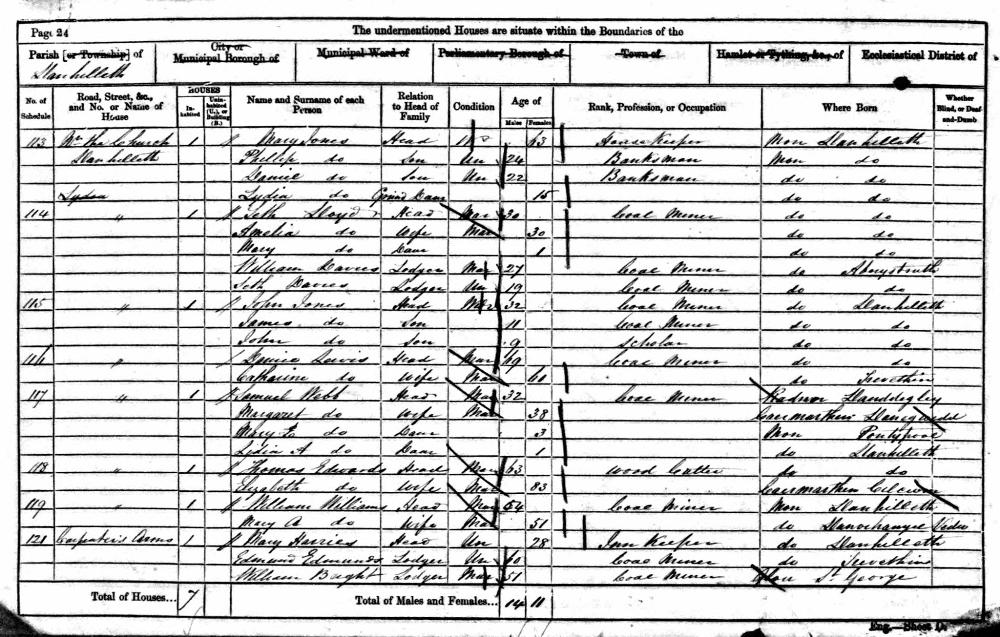 Page 24 The undermentioned Houses are situate within the Boundaries of the
Parish [or Township] of City or Municipal Borough of Municipal Ward of Parliamentary Borough of Town of Hamlet or Tything, &c., of Ecclesiastical District of
Llanhilleth
No. of Schedule Road, Street, &c., and No. or Name of House HOUSES Inhabited Uninhabited (U.), or Building (B.) Name and Surname of each Person Relation to Head of Family Condition Age of Males Females Rank, Profession, or Occupation Where Born Whether Blind, or Deaf-and-Dumb
113 Nr the Church 1 Mary Jones Head 63 House Keeper Mon Llanhilleth
Llanhilleth Phillip do Son Un 24 Banksman Mon do
Daniel do Son Un 22 Banksman do do
Lydia Lydia do Grand Daur 15 do do
114 " 1 Seth Lloyd Head Mar 30 Coal Miner do do
Amelia do Wife Mar 30 do do
Mary do Daur 1 do do
William Davies Lodger Mar 27 Coal Miner do Aberystruth
Seth Davies Lodger Un 19 Coal Miner do do
115 " 1 John Jones Head 32 Coal Miner do Llanhilleth
James do Son 11 Coal Miner do do
John do Son 9 Scholar do do
116 " 1 Lewis Head Mar 69 Coal Miner do do
Catharine do Wife Mar 60 do Trevethin
117 " 1 Samuel Webb Head Mar 32 Coal Miner Radnor Llanddegley
Margaret do Wife Mar 38 Caermarthen
Mary E do Daur 3 Mon Pontypool
Lydia A do Daur 1 do Llanhilleth
118 " 1 Thomas Edwards Head Mar 63 Wood Cutter do do
Elizabeth do Wife Mar 83 Caermarthen Cilcwm
119 " 1 William Williams Head Mar 54 Coal Miner Mon Llanhilleth
Mary A do Wife Mar 51 do
121 Carpenters Arms 1 Mary Harries Head Un 28 Inn Keeper do Llanhilleth
Edmund Edmunds Lodger Un 60 Coal Miner do Trevethin
William Lodger Mar 51 Coal Miner St George
Total of Houses... 7 Total of Males and Females... 14 11
Eng.—Sheet D.